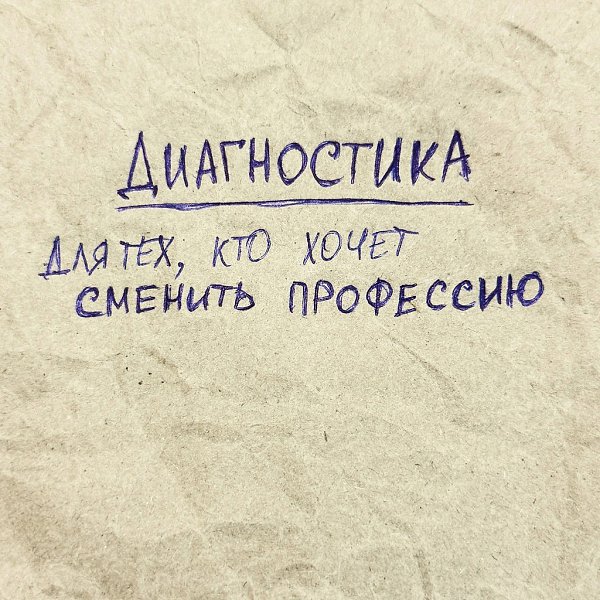 ДИАГНОСТИКА
ДЛЯ ТЕХ, КТО ХОЧЕТ
СМЕНИТЬ ПРОФЕССИЮ